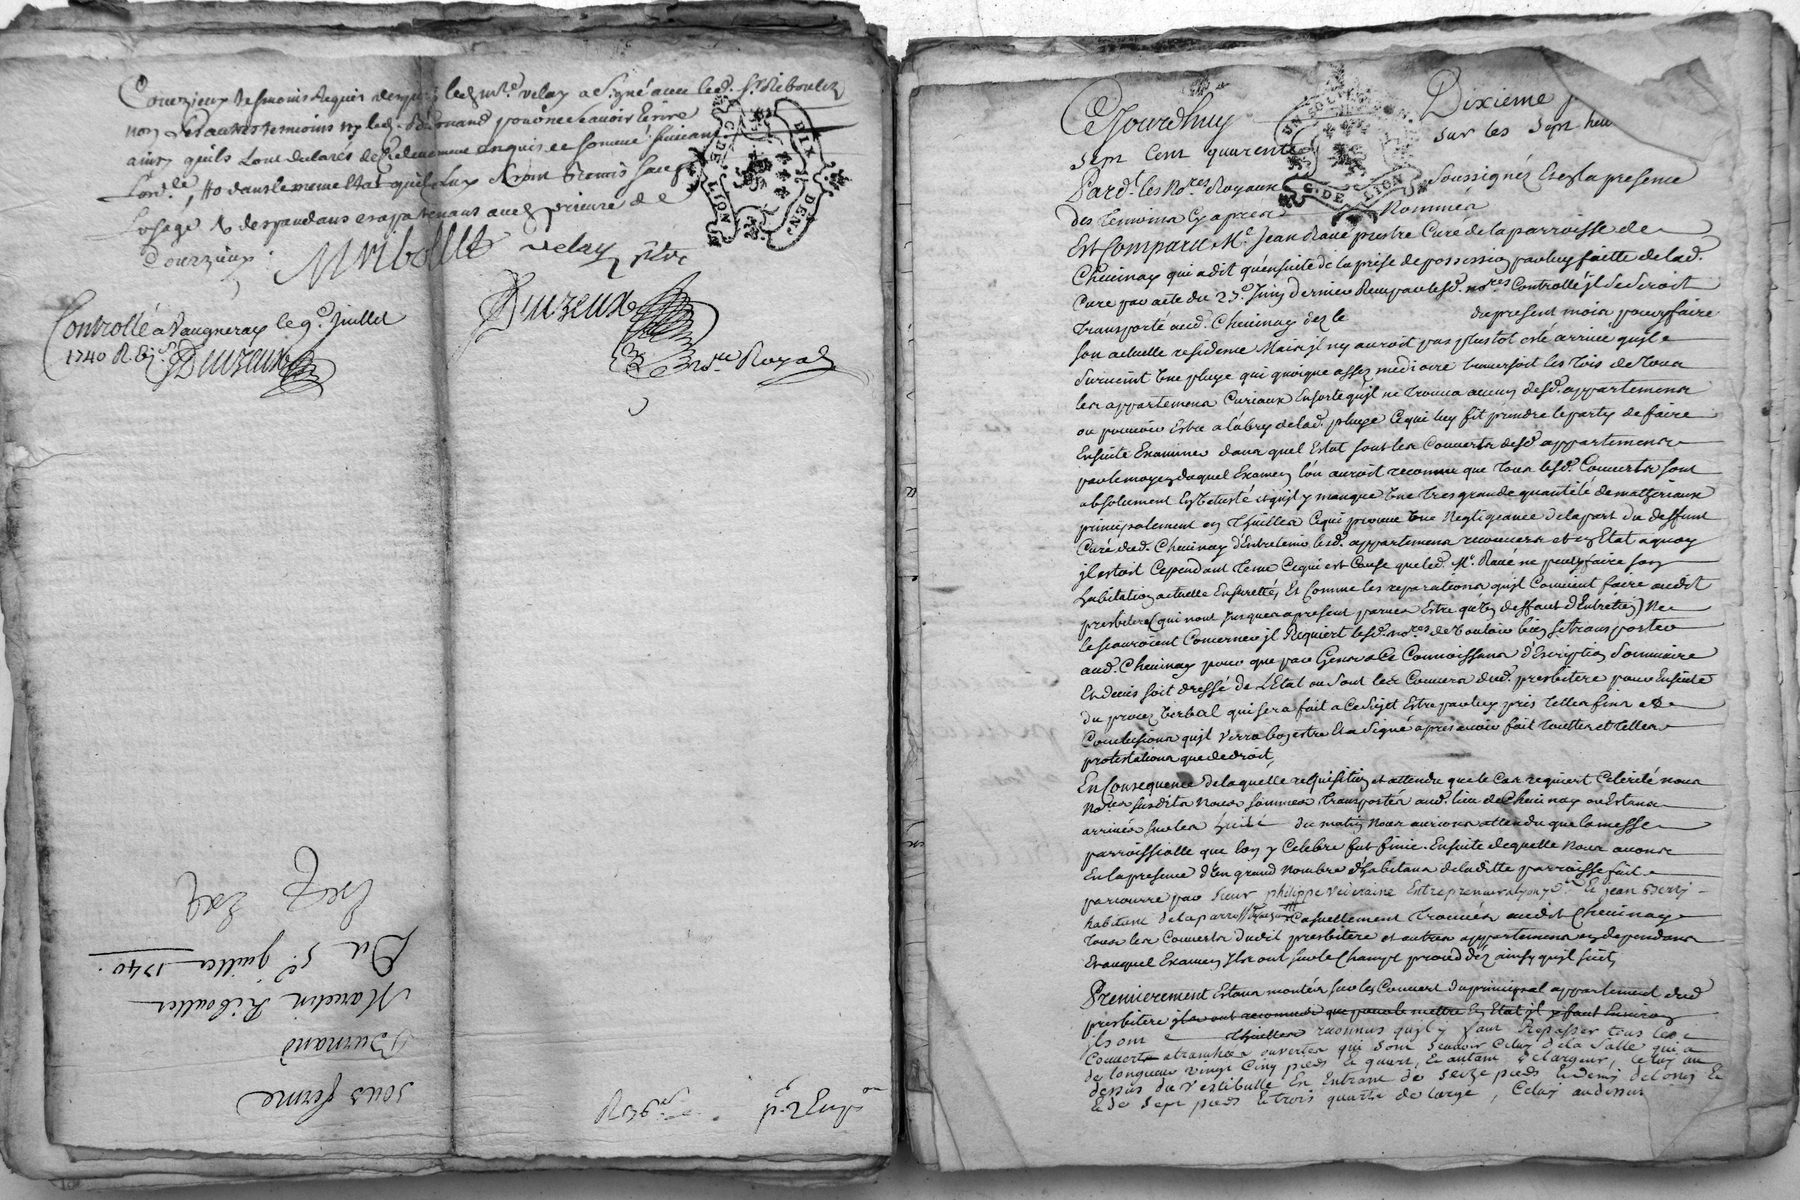 Courzieux tesmoins requis desquels led. mre. velay a signé avec led. Sr. Riboulet
non les autres temoins ny led. Burnand pour ne scavoir Ecrire
ainsy quils l'ont declarés de ce deuement enquis et sommé suivant
Lord.ce, dans le meme Etat quil
Courzieux
MRiboullet velay ptre
Duzeux
Nre. Royal
Controllé à Vaugneray le 9e. Juillet
1740 R.
Duizeux
sous ferme
Burnand
Marcelin Riboullet
Du 5e. juillet 1740.
UN SOL
G. DE LION
DIX DEN.
G. DE LION
Cejourdhuy Dixieme
sept cent quarente sur les sept heu
Pard.t les No.res Royaux soussignés Et en la presence
des temoins cy apres Nommés
Est Comparu Mre. Jean Ravé prestre Curé de la parroisse de
Chevinay qui a dit qu'ensuite de la prise de possession par luy faitte de lad.
Cure par acte du 23e. Juin dernier Receu par lesd. nores Controllé jl se seroit
transporté aud. Chevinay dez le du present mois pour y faire
son actuelle residence Mais jl ny auroit pas plustot eté arrivé quil
survint Une pluye qui quoique assez mediocre traversoit les toits de tous
les appartemens Curiaux Ensorte quil ne trouva aucun desd. appartemens
ou pouvoir Estre a labry de lad. pluye Ce qui luy fit prendre le party de faire
Ensuite Examiner dans quel Estat sont les Couverts desd. appartemens
par le moyen duquel Examen l'on auroit reconnu que tous lesd. Couverts sont
absolument En Vetusté et quil y manque Une tres grande quantité de matteriaux
principalement en thuilles Ce qui prouve Une Negligeance de la part du deffunt
Curé dud. Chevinay d'Entretenir lesd. appartemens recouvers et en Etat a quoy
jl estoit Cependant tenu Ce qui est Cause que led. Mre. Ravé ne peut y faire son
habitation actuelle En sureté, Et Comme les reparations quil Convient faire audit
presbitere (qui n'ont jusques a present parues Estre qu'un deffaut d'Entretien) Ne
le scauroient Concerner jl Requiert lesd. nores de Vouloir bien se transporter
aud. Chevinay pour que par Gens a Ce Connoissans d'Escription Sommaire
Et devis soit dressé de L'Etat ou sont les Couvers dud. presbitere pour Ensuite
du procez Verbal qui sera fait a Ce Sujet Estre par luy pris telles fins et
Conclusions quil Verra bon estre Et a signé apres avoir fait touttes et telles
protestations que de droit,
En Consequence de laquelle requisition et attendu que le Cas requiert Celerité nous
Nores. susdits Nous sommes transportés aud. lieu de Chevinay ou Estans
arrivés sur les huit du matin Nous aurions attendu que la messe
parroissialle que l'on y Celebre fut finie. Ensuite de quelle Nous avons
En la presence d'un grand Nombre d'habitans de laditte parroisse fait
parcourre par sieur philippe Veideraine Entrepreneur a lyon Et jean
habitant de la parroisse Casuellement trouvés audit Chevinay
tous les Couverts dudit presbitere et autres appartemens en dependans
Et auquel Examen Ils ont sur le Champ procedé ainsy quil suit,
Premierement Estans montés sur les Couvert du principal appartement dud
presbitere ils ont reconnus que pour le mettre En Etat jl y faut Environ
ils ont thuilles reconnus quil y faut Repasser tous les
Couverts a tranchées ouvertes qui sont scavoir Celuy de la salle qui a
de longueur vingt cinq pieds et quart, Et autant de largeur, Celuy au
dessus du Vestibulle En Entrant de seize pieds et demis de long Et
Et de sept pieds Et trois quarts de large, Celuy au dessus